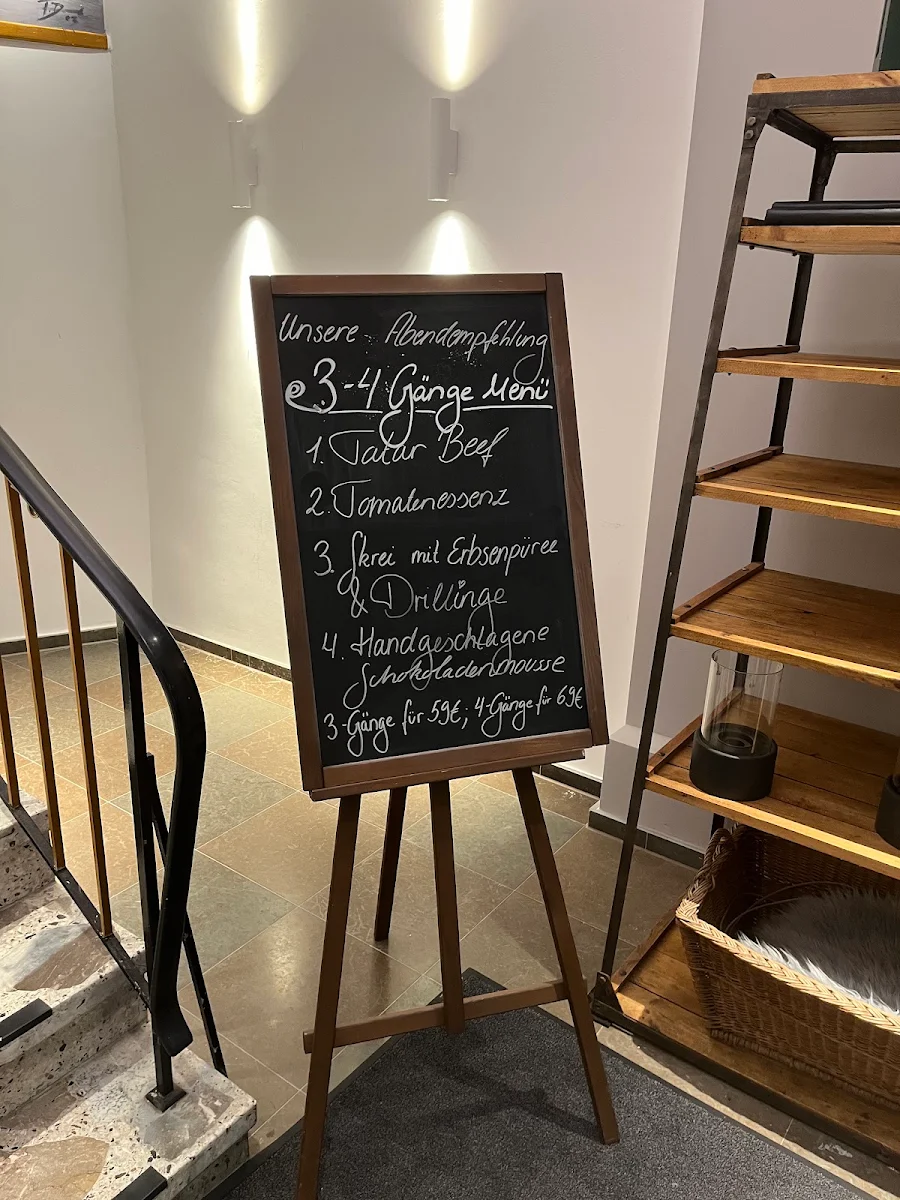 Unsere Abendempfehlung
3-4 Gänge Menü
1. Tatar Beef
2. Tomatenessenz
3. Skrei mit Erbsenpüree
& Drillinge
4. Handgeschlagene
Schokoladenmousse
3-Gänge für 59€; 4-Gänge für 69€